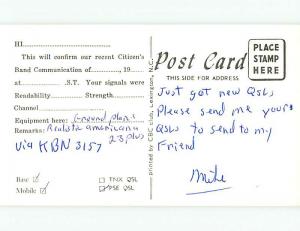 HI
This will confirm our recent Citizen's
Band Communication of , 19
at .S.T. Your signals were
Readability Strength
Channel
Equipment here: Ground plane
Remarks: Realistic americana
23 plus
Via KBN 3157
Base ✓ □ TNX QSL
Mobile ✓ ☑ PSE QSL
printed by CBC club, Lexington, N.C.
Post Card
THIS SIDE FOR ADDRESS
PLACE
STAMP
HERE
Just got new QSL,
Please send me your
QSL to send to my
Friend
Mike